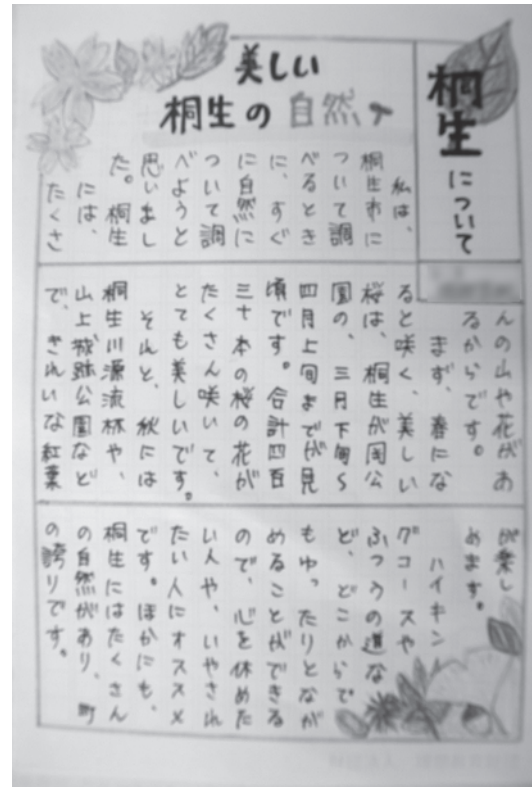 桐生について
美しい
桐生の自然
私は、
桐生市に
ついて調
べるとき
に、すぐ
に自然に
ついて調
べようと
思いまし
た。桐生
には、
たくさ
んの山や花があ
るからです。
まず、春にな
ると咲く、美しい
桜は、桐生が岡公
園の、三月下旬〜
四月上旬までが見
頃です。合計四百
三十本の桜の花が
たくさん咲いて、
とても美しいです。
それと、秋には
桐生川源流林や、
山上城跡公園など
で、きれいな紅葉
が楽し
めます。
ハイキン
グコースや
ふつうの道な
ど、どこからで
もゆったりとなが
めることができる
ので、心を休めた
い人や、いやされ
たい人にオススメ
です。ほかにも、
桐生にはたくさん
の自然があり、町
の誇りです。